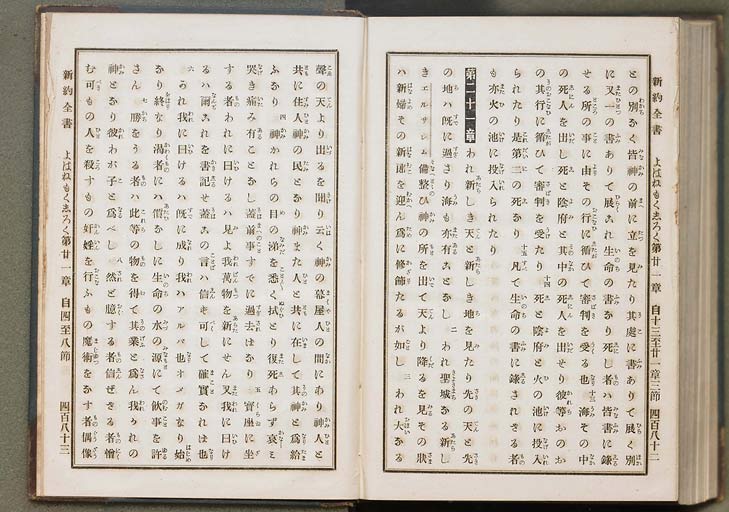 新約全書 よはねもくしろく第廿一章 自十三至廿一章三節 四百八十二
との別なく皆神の前に立を見たり其處に書ありて展く別
に又一の書ありて展これ生命の書なり死し者ハ皆書に錄
せる所の事に由その行に循ひて審判を受る也 海その中
の死人を出し死と陰府も其中の死人を出せり彼等おのおの
其行に循ひて審判を受たり 十四 死と陰府と火の池に投入
られたり是第二の死なり 十五 凡て生命の書に錄されざる者
も亦火の池に投入られたり
第二十一章 われ新しき天と新しき地を見たり先の天と先
の地ハ既に過さり海も亦有ことなし 二 われ聖城なる新し
きエルサレム備整ひ神の所を出て天より降るを見その狀
ハ新婦その新郎を迎ん爲に修飾たるが如し 三 われ大なる
聲の天より出るを聞り云く神の幕屋人の間にあり神人と
共に住人神の民となり神また人と共に在して其神と爲給
ふなり 四 神かれらの目の涕を悉く拭とり復死あらず哀み
哭き痛み有ことなし蓋前事すでに過去ばなり 五 寶座に坐
する者われに曰けるハ見よ我萬物を新にせん又我に曰け
るハ爾これを書記せ蓋この言ハ信ず可して確實なれば也
六 かれ我に曰けるハ既に成り我ハアルパ也オメガなり始
なり終なり渴者にハ價なしに生命の水の源にて飮事を許
さん 七 勝をうる者ハ此等の物を得て其業と爲ん我かれの
神となり彼わが子と爲べし 八 然ど臆する者信ぜざる者憎
む可もの人を殺すもの奸婬を行ふもの魔術をなす者偶像
新約全書 よはねもくしろく第廿一章 自四至八節 四百八十三